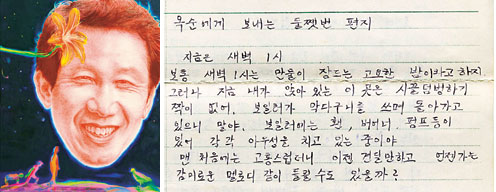 옥순에게 보내는 둘쨋번 편지
지금은 새벽 1시
보통 새벽 1시는 만물이 잠드는 고요한 밤이라고 하지
그러나 지금 내가 앉아 있는 이 곳은 시끌덤벙하기
짝이 없어. 보일러가 악다구니를 쓰며 돌아가고
있으니 말야. 보일러에는 홴, 버너니 펌프등이
있어 각각 아우성을 치고 있는 중이야
맨 처음에는 고통스럽더니 이젠 견딜만하고 언젠가는
감미로운 멜로디 같이 들릴 수도 있을까?